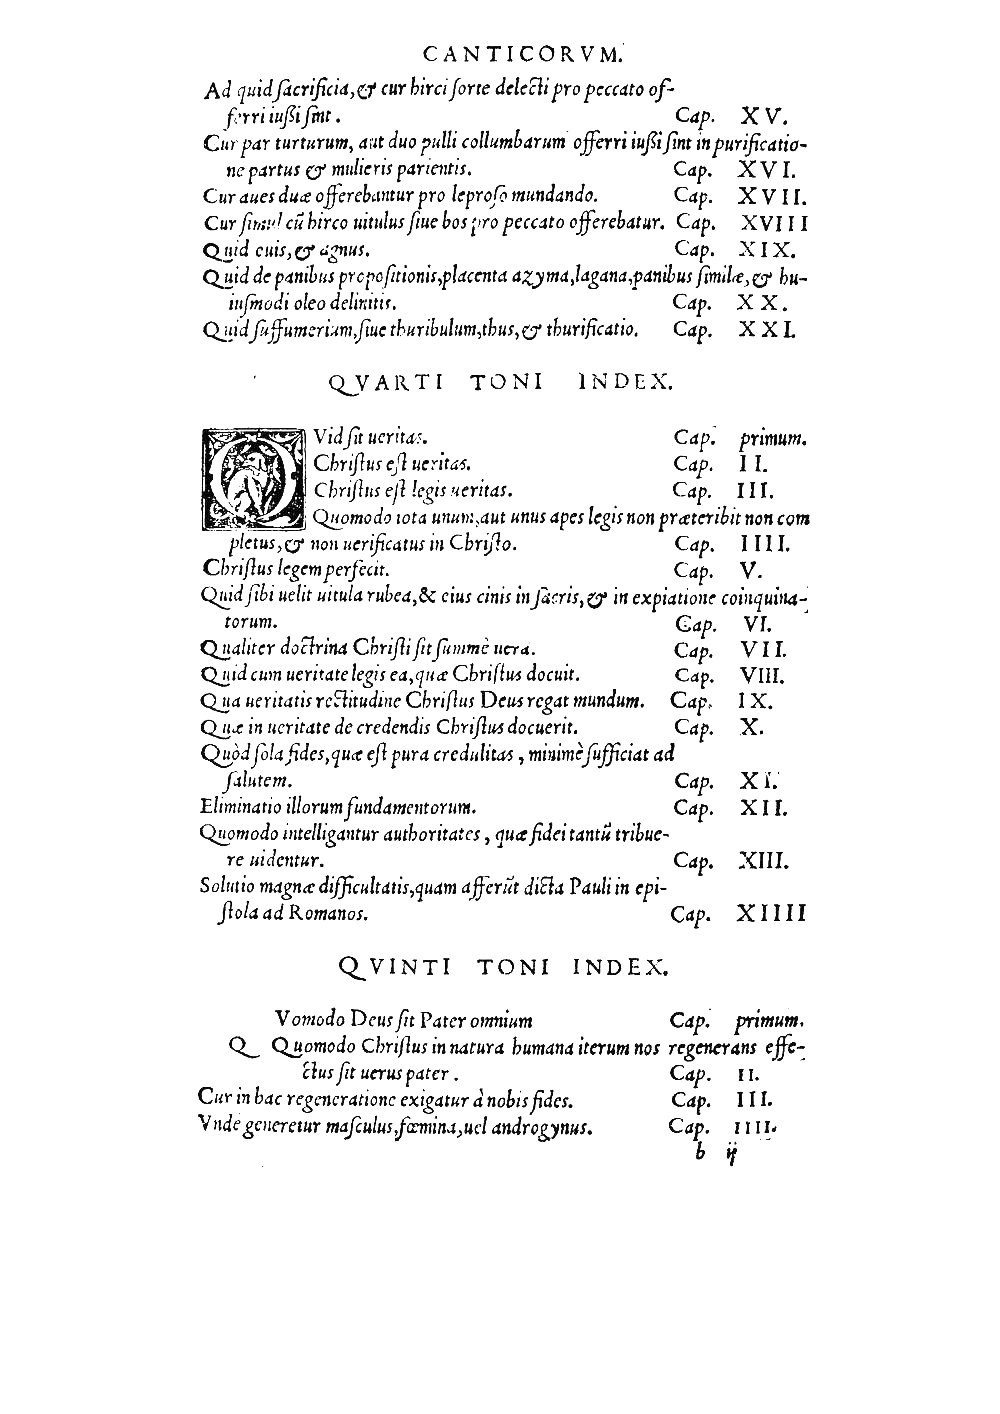 CANTICORVM.
Ad quid sacrificia, & cur hirci sorte delecti pro peccato of-
ferri iussi sint. Cap. XV.
Cur par turturum, aut duo pulli collumbarum offerri iussi sint in purificatio-
ne partus & mulieris parientis. Cap. XVI.
Cur aues duæ offerebantur pro leproso mundando. Cap. XVII.
Cur simul cũ hirco uitulus siue bos pro peccato offerebatur. Cap. XVIII
Quid ouis, & agnus. Cap. XIX.
Quid de panibus propositionis, placenta azyma, lagana, panibus similæ, & hu-
iusmodi oleo delinitis. Cap. XX.
Quid suffumerium, siue thuribulum, thus, & thurificatio. Cap. XXI.
QVARTI TONI INDEX.
QVid sit ueritas. Cap. primum.
Christus est ueritas. Cap. II.
Christus est legis ueritas. Cap. III.
Quomodo iota unum, aut unus apes legis non præteribit non com
pletus, & non uerificatus in Christo. Cap. IIII.
Christus legem perfecit. Cap. V.
Quid sibi uelit uitula rubea, & eius cinis in sacris, & in expiatione coinquina-
torum. Cap. VI.
Qualiter doctrina Christi sit summè uera. Cap. VII.
Quid cum ueritate legis ea, quæ Christus docuit. Cap. VIII.
Qua ueritatis rectitudine Christus Deus regat mundum. Cap. IX.
Quæ in ueritate de credendis Christus docuerit. Cap. X.
Quòd sola fides, quæ est pura credulitas, minimè sufficiat ad
salutem. Cap. XI.
Eliminatio illorum fundamentorum. Cap. XII.
Quomodo intelligantur authoritates, quæ fidei tantũ tribue-
re uidentur. Cap. XIII.
Solutio magnæ difficultatis, quam afferũt dicta Pauli in epi-
stola ad Romanos. Cap. XIIII
QVINTI TONI INDEX.
QVomodo Deus sit Pater omnium Cap. primum.
Quomodo Christus in natura humana iterum nos regenerans effe-
ctus sit uerus pater. Cap. II.
Cur in hac regeneratione exigatur à nobis fides. Cap. III.
Vnde generetur masculus, fœmina, uel androgynus. Cap. IIII.
b ij